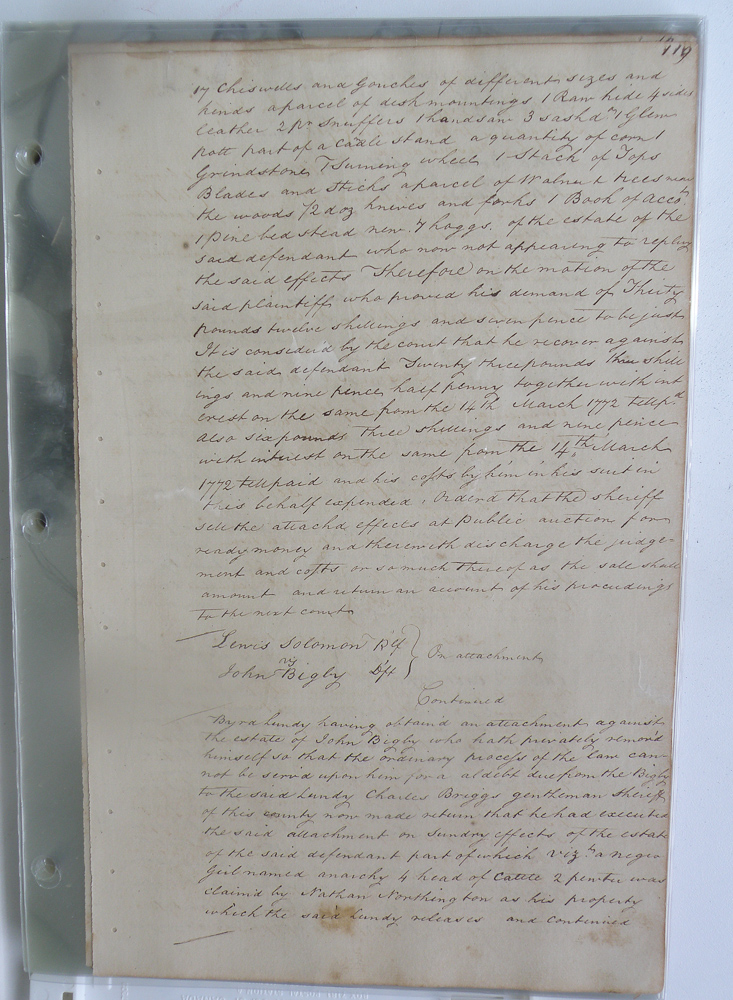 119
17 Chiswells and Gouches of different sizes and
kinds aparcel of deskmountings 1 Raw hide 4 sides
leather 2 pr Snuffers 1 handsaw 3 sash do 1 Glew
pott part of a Cadle stand a quantity of corn 1
Grindstone 1 Turning wheel 1 Stack of Tops
Blades and Sticks aparcel of Walnut trees near
the woods 1/2 doz knives and forks 1 Book of Accots
1 Pine bedstead new. 7 hoggs. of the estate of the
said defendant who now not appearing to replevy
the said effects Therefore on the motion of the
said plaintiff who proved his demand of Thirty
pounds twelve shillings and seven pence to be just
It is consider'd by the court that he recover against
the said defendant Twenty three pounds three shill
ings and nine pence half penny together with int
erest on the same from the 14th March 1772 till pd
also six pounds three shillings and nine pence
with interest on the same from the 14th March
1772 till paid and his costs by him in his suit in
this behalf expended. Order'd that the sheriff
sell the attachd effects at Public auction for
ready money and therewith discharge the judge-
ment and costs or so much thereof as the sale shall
amount and return an account of his proceedings
to the next court
Lewis Solomon Plf
vs
On attachment
John Bigby Dft
Continued
Byrd Lundy having obtain'd an attachment against
the estate of John Bigby who hath privately remov'd
himself so that the ordinary process of the law can-
not be serv'd upon him for a debt due from the Bigby
to the said Lundy Charles Breggs gentleman Sheriff
of this county now made return that he had executed
the said attachment on Sundry effects of the estate
of the said defendant part of which vizt a negro
Girl named anarchy 4 head of Cattle 2 pewter was
claim'd by Nathan Northington as his property
which the said Lundy releases and continued